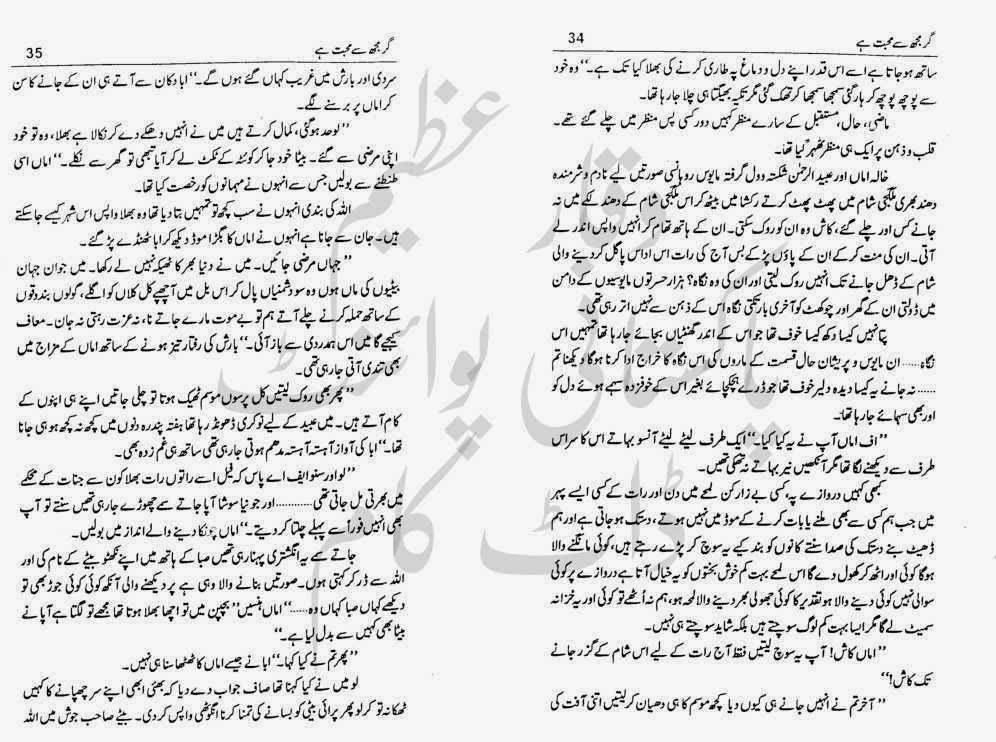 گر مجھ سے محبت ہے 34
ساتھ ہو جاتا ہے اسے اس قدر اپنے دل و دماغ پہ طاری کرنے کی بھلا کیا تک ہے۔‘‘ وہ خود
سے پوچھ پوچھ کر ہار گئی سمجھا سمجھا کر تھک گئی مگر تکیہ بھیگتا ہی چلا جا رہا تھا۔
ماضی، حال، مستقبل کے سارے منظر کہیں دور کسی پس منظر میں چلے گئے تھے۔
قلب و ذہن پر ایک ہی منظر ٹھہر گیا تھا۔
خالہ اماں اور عبید الرحمٰن شکستہ و دل گرفتہ مایوس روہانسی صورتیں لیے نادم و شرمندہ
دھند بھری ملگجی شام میں پھٹ پھٹ کرتے رکشا میں بیٹھ کر اس ملگجی شام کے دھندلکے میں نہ
جانے کس اور چلے گئے، کاش وہ ان کو روک سکتی۔ ان کے ہاتھ تھام کر انہیں واپس اندر لے
آتی۔ ان کی منت کرکے ان کے پاؤں پڑ کے بس آج کی رات اس اداس پاگل کر دینے والی
شام کے ڈھل جانے تک انہیں روک لیتی اور ان کی وہ نگاہ؟ ہزار حسرتوں مایوسیوں کے دامن
میں ڈوبتی ان کے گھر اور چوکھٹ کو آخری بار تکتی نگاہ اس کے ذہن سے نہیں اتر رہی تھی۔
پتا نہیں کیسا دکھ کیسا خوف تھا جو اس کے اندر گھنٹیاں بجائے جا رہا تھا تمہیں اس
نگاہ...... ان مایوس و پریشان حال قسمت کے ماروں کی اس نگاہ کا خراج ادا کرنا ہوگا دیکھنا تم
...... نہ جانے یہ کیسا دیدہ دلیر خوف تھا جو ڈرے ہچکچائے بغیر اس کے خوفزدہ سہمے ہوئے دل کو
اور بھی سہائے جا رہا تھا۔
’’اف اماں آپ نے یہ کیا کیا۔‘‘ ایک طرف لیٹے لیٹے آنسو بہاتے اس کا سر اس
طرف سے دیکھنے لگا تھا مگر آنکھیں نیر بہاتے نہ تھکی تھیں۔
کبھی کہیں دروازے پہ، کسی بے زار کن لمحے میں دن اور رات کے کسی ایسے پہر
میں جب ہم کسی سے بھی ملنے یا بات کرنے کے موڈ میں نہیں ہوتے، دستک ہو جاتی ہے اور ہم
ڈھیٹ بنے دستک کی صدا سنتے کانوں کو بند کیے یہ سوچ کر پڑے رہتے ہیں، کوئی مانگنے والا
ہوگا کوئی اور اٹھ کر کھول دے گا اس لمحے بہت کم خوش بختوں کو یہ خیال آتا ہے دروازے پر کوئی
سوالی نہیں کوئی دینے والا ہو تقدیر کا کوئی جھولی بھر دینے والا لمحہ ہو، ہم نہ اُٹھے تو کوئی اور یہ خزانہ
سمیٹ لے گا مگر ایسا بہت کم لوگ سوچتے ہیں بلکہ شاید سوچتے ہی نہیں۔
’’اماں کاش! آپ یہ سوچ لیتیں فقط آج رات کے لیے اس شام کے گزر جانے
تک کاش!‘‘
’’آخر تم نے انہیں جانے ہی کیوں دیا کچھ موسم کا ہی دھیان کر لیتیں اتنی آفت کی
گر مجھ سے محبت ہے 35
سردی اور بارش میں غریب کہاں گئے ہوں گے۔‘‘ ابا دکان سے آتے ہی ان کے جانے کا سن
کر اماں پر برسنے لگے۔
’’لو حد ہوگئی، کمال کرتے ہیں میں نے انہیں دھکے دے کر نکالا ہے بھلا، وہ تو خود
اپنی مرضی سے گئے۔ بیٹا خود جا کر کوئٹہ کے ٹکٹ لے کر آیا تبھی تو گھر سے نکلے۔‘‘ اماں اسی
طنطنے سے بولیں جس سے انہوں نے مہمانوں کو رخصت کیا تھا۔
اللہ کی بندی انہوں نے سب کچھ تو تمہیں بتا دیا تھا وہ بھلا واپس اس شہر کیسے جا سکتے
ہیں۔ جان سے جانا ہے انہوں نے اماں کا بگڑا موڈ دیکھ کر ابا ٹھنڈے پڑ گئے۔
’’جہاں مرضی جائیں۔ میں نے دنیا بھر کا ٹھیکہ نہیں لے رکھا۔ میں جوان جہان
بیٹیوں کی ماں ہوں وہ سو دشمنیاں پال کر اس بل میں آ چھپے کل کلاں کو اگلے، گولوں بندوقوں
کے ساتھ حملہ کرنے چلے آتے ہم تو بے موت مارے جاتے نا، نہ عزت رہتی نہ جان۔ معاف
کیجیے گا میں اس ہمدردی سے باز آئی۔‘‘ بارش کی رفتار تیز ہونے کے ساتھ اماں کے مزاج میں
بھی تندی آتی جا رہی تھی۔
’’پھر بھی روک لیتیں کل پرسوں موسم ٹھیک ہوتا تو چلی جاتیں اپنے ہی اپنوں کے
کام آتے ہیں۔ میں عبید کے لیے نوکری ڈھونڈ رہا تھا ہفتہ پندرہ دنوں میں کچھ نہ کچھ ہو ہی جانا
تھا۔‘‘ ابا کی آواز آہستہ آہستہ مدھم ہوتی جا رہی تھی ساتھ ہی غم زدہ بھی۔
’’لو اور سنو ایف اے پاس کہ فیل اسے راتوں رات بھلا کون سے جنات کے محکمے
میں بھرتی مل جاتی تھی............ اور جو نیا سوشا آپا جاتے سے چھوڑے جا رہی تھیں سنتے تو آپ
بھی انہیں فوراً سے پہلے چلتا کر دیتے۔‘‘ اماں چونکا دینے والے انداز میں بولیں۔
جاتے سے یہ انگشتری پہنا رہی تھیں صبا کے ہاتھ میں اپنے نکھٹو بیٹے کے نام کی اور
اللہ سے ڈر کر کہتی ہوں۔ صورتیں بنانے والا وہی ہے پر دیکھنے والی آنکھ کوئی کوئی جوڑ بھی تو
دیکھے کہاں صبا کہاں وہ......‘‘ اماں ہنسیں ’’بچپن میں تو اچھا بھلا ہوتا تھا مجھے تو لگتا ہے آپا نے
بیٹا بھی کہیں سے بدل لیا ہے۔‘‘
’’پھر تم نے کیا کہا۔‘‘ ابا نے جیسے اماں کا ٹھٹھا سنا ہی نہیں۔
لو میں نے کیا کہنا تھا صاف جواب دے دیا کہ بھئی ابھی اپنے سر چھپانے کا کہیں
ٹھکانہ تو کر لو پھر پرائی بیٹی کو بسانے کی تمنا کرنا انگوٹھی واپس کر دی۔ بیٹے صاحب جوش میں اللہ
وقار عظیم
پاکستانی پوائنٹ
ڈاٹ کام